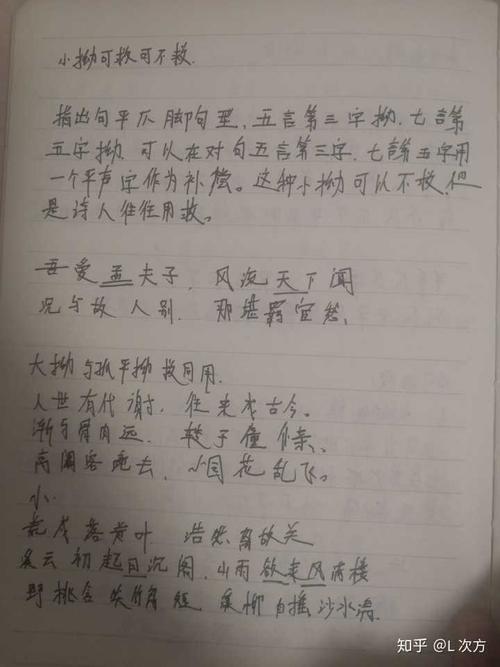 小拗可救可不救.
指出句平仄脚句型,五言第三字拗.七言第
五字拗.可以在对句五言第三字.七言第五字用
一个平声字作为补偿。这种小拗可以不救,但
是诗人往往用救。
吾爱孟夫子,风流天下闻
况与故人别.那堪羁宦愁.
大拗与孤平拗救同用.
人世有代谢.往来成古今。
渐与骨肉远.转于僮仆亲.
高阁客竟去,小园花乱飞。
小.
荒戍落黄叶 浩然离故关
溪云初起日沉阁.山雨欲来风满楼
野桃含笑竹篱短 溪柳自摇沙水清.
知乎 @L 次方